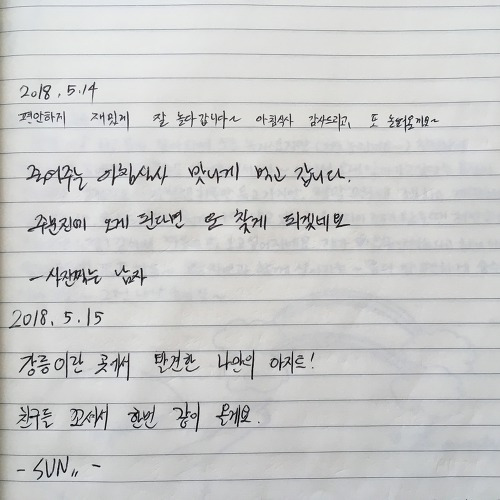 2018. 5. 14
편안하게 재밌게 잘 놀다갑니다~ 아침식사 감사드리고, 또 놀러올게요~
차려주는 아침식사 맛나게 먹고 갑니다.
주문진에 오게 된다면 또 찾게 되겠네요
-사진찍는 남자
2018. 5. 15
강릉이란 곳에서 발견한 나만의 아지트!
친구들 꼬셔서 한번 같이 올게요.
- SUN,, -